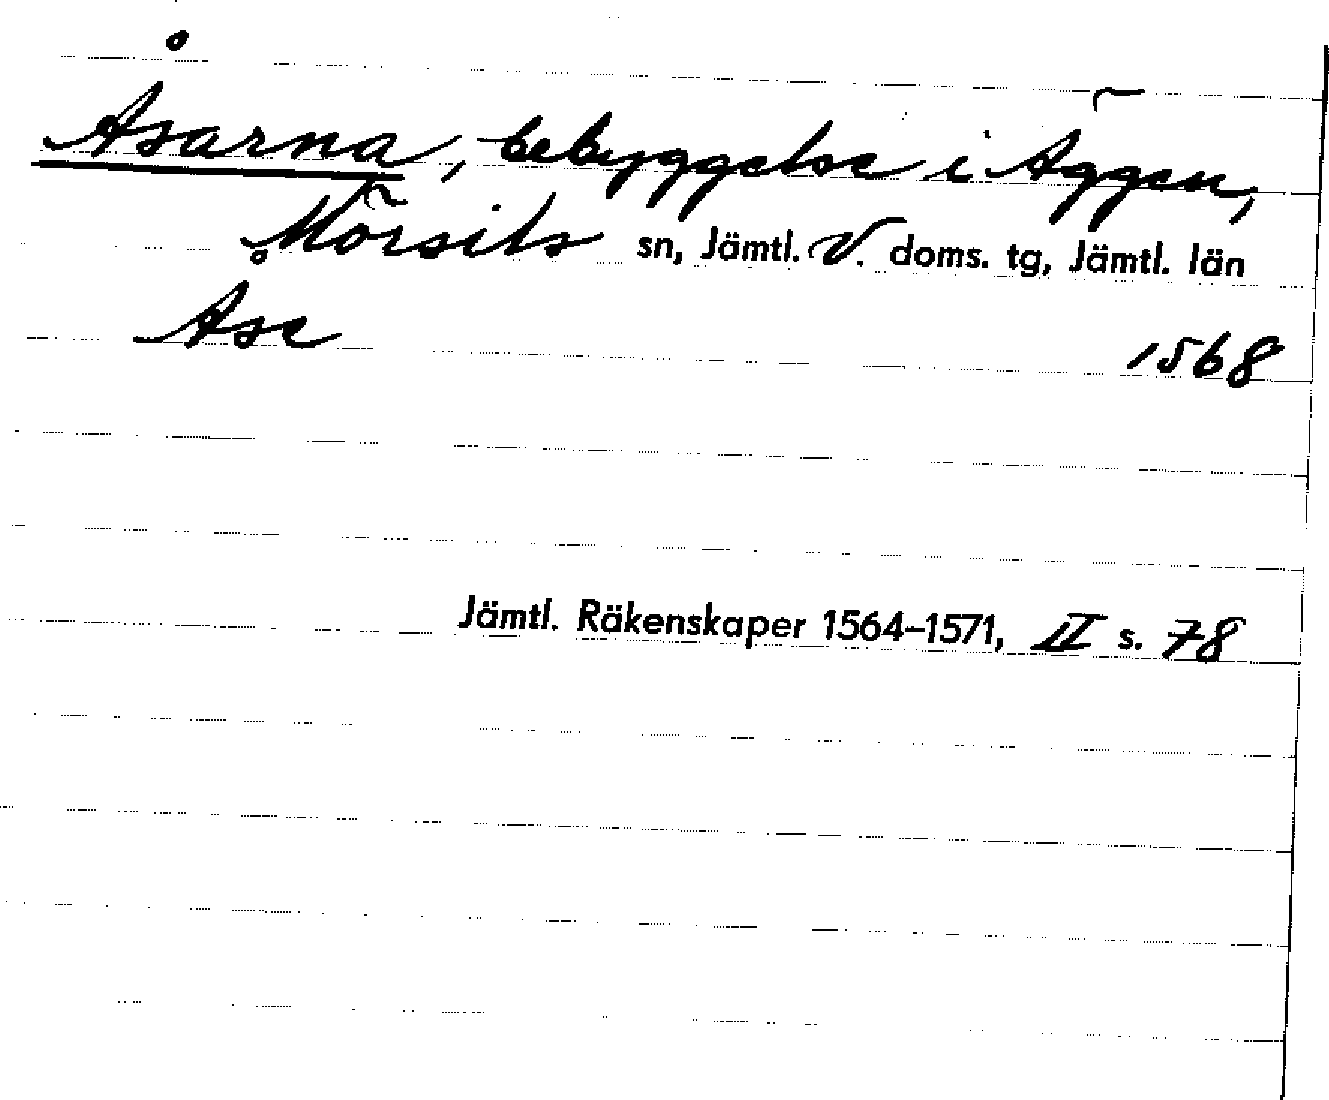 Åsarna, bebyggelse i Äggen,
Mörsils sn, Jämtl. V. doms. tg, Jämtl. län
Åse 1568
Jämtl. Räkenskaper 1564–1571, II s. 78